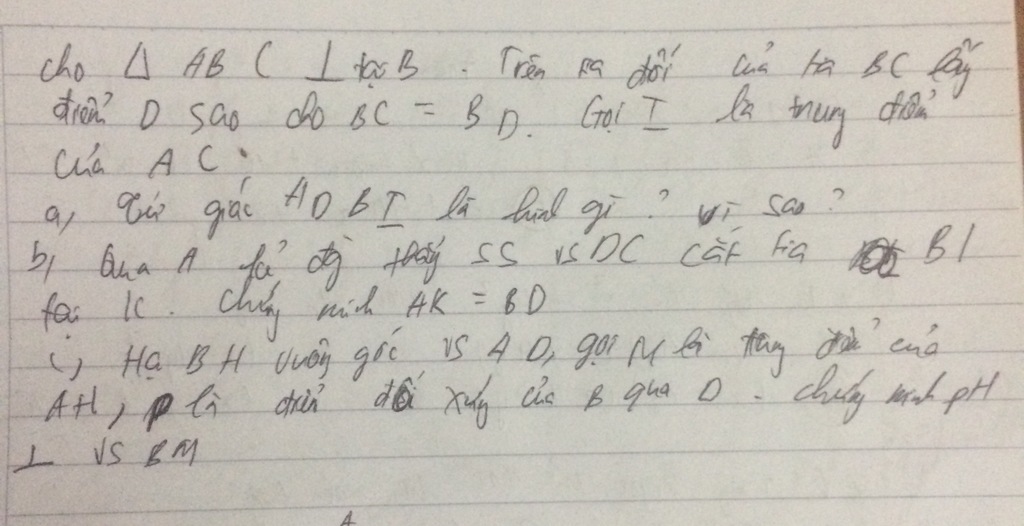 cho Δ AB C ⊥ tại B . Trên tia đối của tia BC lấy
điểm D sao cho BC = BD. Gọi I là trung điểm
của AC.
a, Tứ giác ADBI là hình gì ? vì sao ?
b, Qua A kẻ đg thẳng SS vs DC cắt tia BI
tại K. Chứng minh AK = BD
c, Hạ BH vuông góc vs AD, gọi M là trung điểm của
AH, P là điểm đối xứng của B qua D. chứng minh PH
⊥ vs BM
A